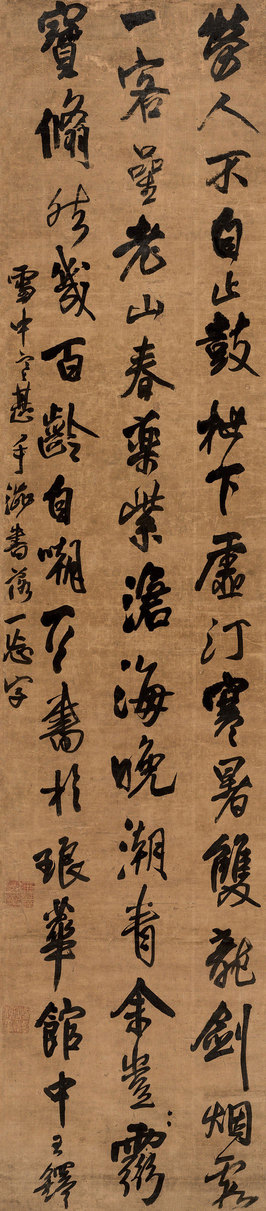 勞人不自止鼓枻下虛汀寒暑雙龍劍烟霞
一客星老山春藥紫滄海晚潮青余豈靈
寶翛然幾百齡自嘲書於琅華館中王鐸
雪中寒甚手澀書落一字